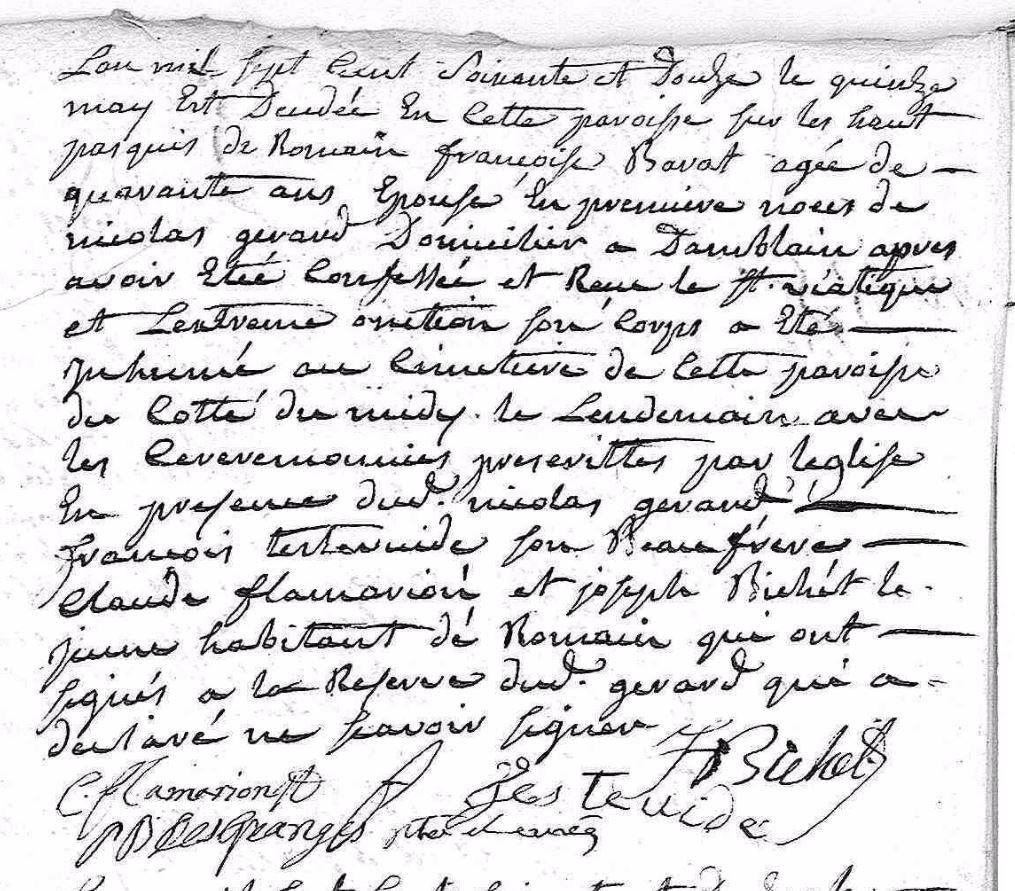 Lan mil sept Cent Soixante et Douze le quinze
may Est Decedée En Cette paroisse sur les haut
pasquis de Romain françoise Bavat agée de
quarante ans Epouse En première noces de
nicolas gerard Domicilier a Damblain apres
avoir Etée Confessée et Receu le st. viatique
et Lextreme onction son Corps a Eté
Inhumé au Cimetiere de Cette paroisse
du Cotté du midy. le Lendemain avec
les Ceveremonnies prescrittes par leglise
En presence dud. nicolas gerard
francois testevuide son Beaufrere
Claude flamarion et joseph Bichét le
jeune habitant de Romain qui ont
signés a la Reserve dud. gerard qui a
declaré ne scavoir signer
J Bichet
C. flamarion F testevuide
Desgranges ptre et curé